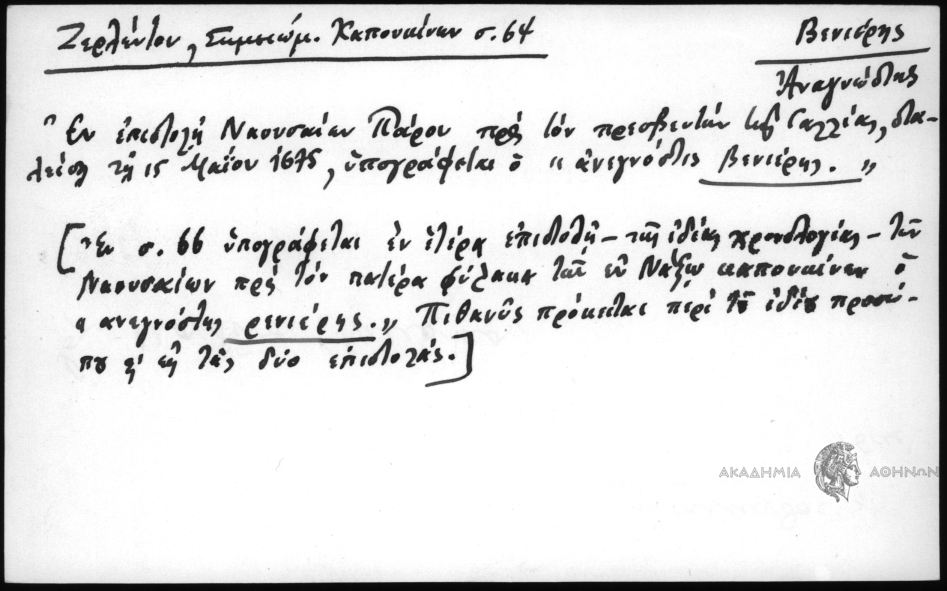 Ζερλέντου, Σημειώμ. Καπουκίνων σ. 64
Βενιέρης
Ἀναγνώστης
Ἐν ἐπιστολῇ Ναουσαίων Πάρου πρὸς τὸν πρεσβευτὴν τῆς Γαλλίας, στα-
λείσῃ τῇ 15 Μαΐου 1675, ὑπογράφεται ὁ "ἀνεγνόστις Βενιέρης."
[Ἐν σ. 66 ὑπογράφεται ἐν ἑτέρᾳ ἐπιστολῇ – τῆς ἰδίας χρονολογίας – τῶν
Ναουσαίων πρὸς τὸν πατέρα φύλακα τῶν ἐν Νάξῳ καπουκίνων ὁ
"ανεγνόστης ρενιέρης." Πιθανῶς πρόκειται περὶ τοῦ ἰδίου προσώ-
που κ' εἰς τὰς δύο ἐπιστολάς.]
ΑΚΑΔΗΜΙΑ ΑΘΗΝΩΝ